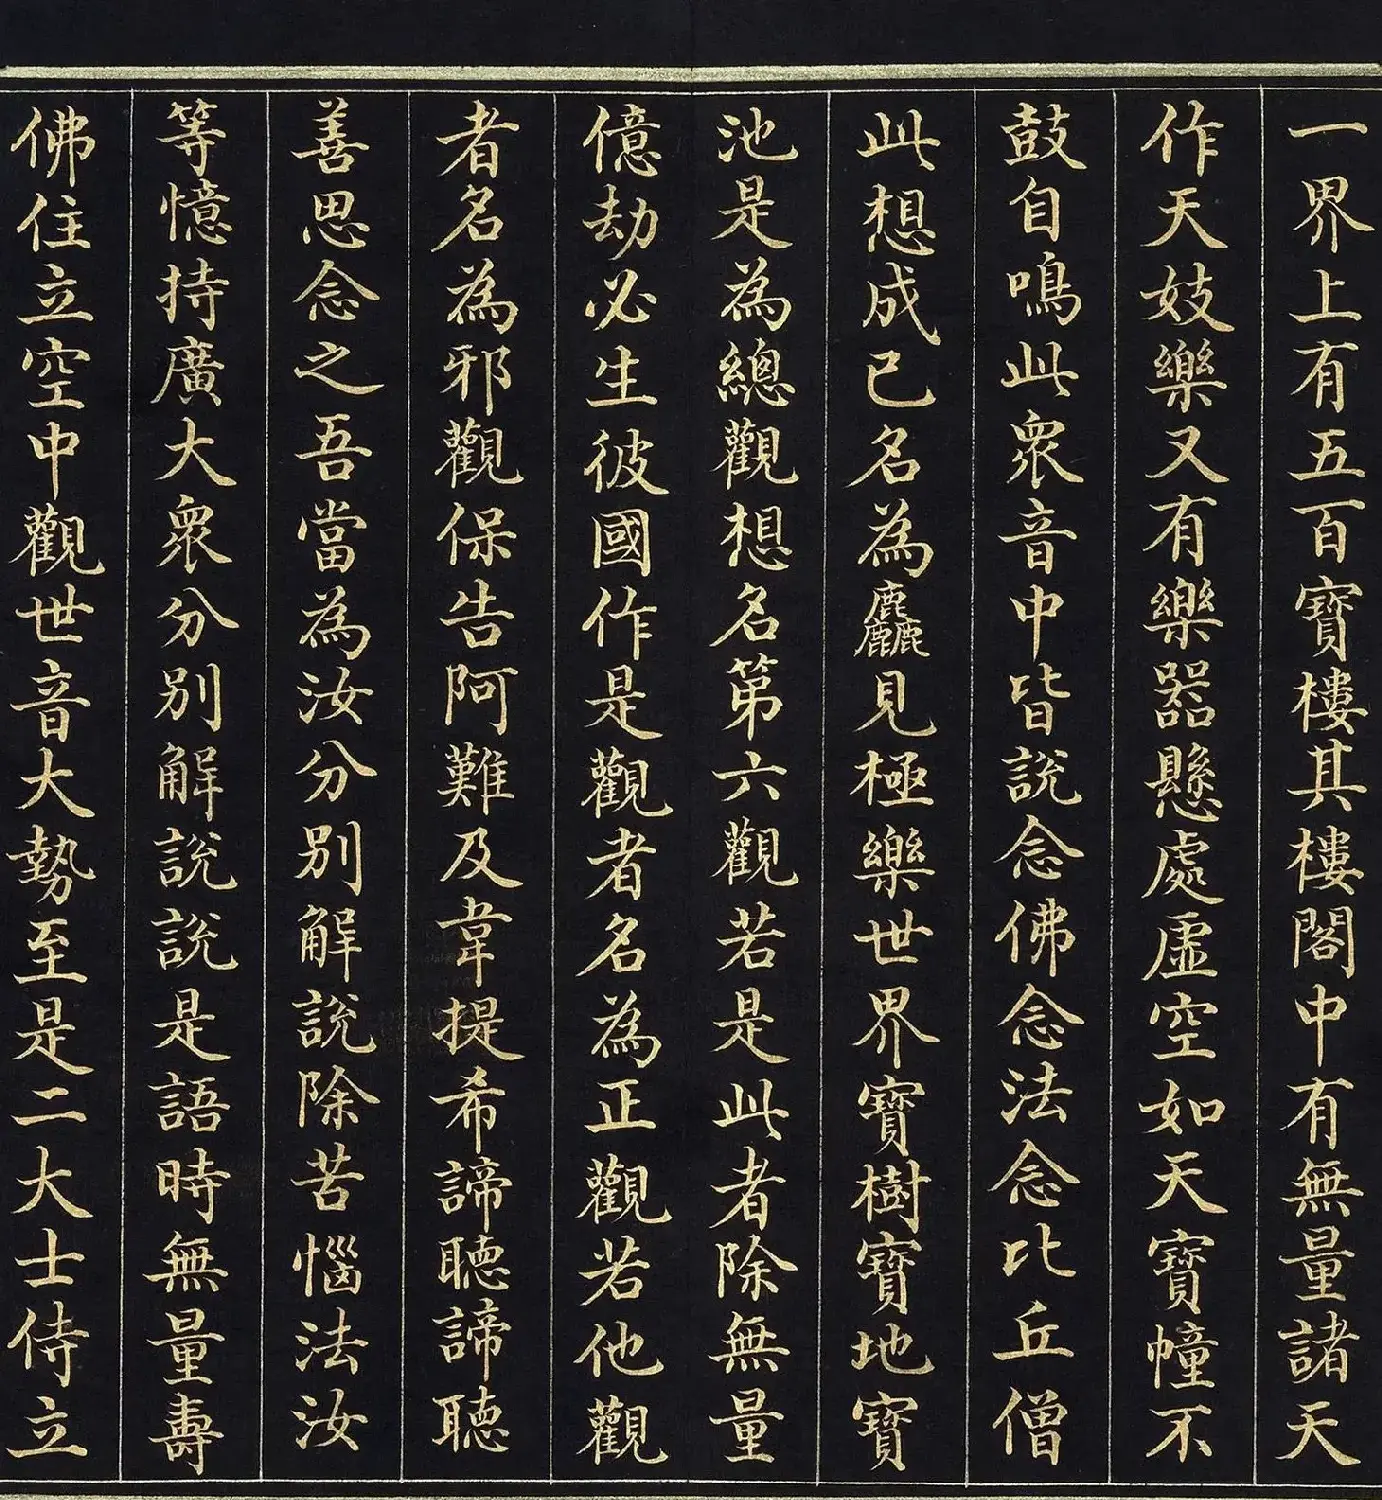 一界上有五百寶樓其樓閣中有無量諸天
作天妓樂又有樂器懸處虛空如天寶幢不
鼓自鳴此衆音中皆說念佛念法念比丘僧
此想成已名為麤見極樂世界寶樹寶地寶
池是為總觀想名第六觀若是此者除無量
億劫必生彼國作是觀者名為正觀若他觀
者名為邪觀保告阿難及韋提希諦聽諦聽
善思念之吾當為汝分別解說除苦惱法汝
等憶持廣大衆分別解說說是語時無量壽
佛住立空中觀世音大勢至是二大士侍立